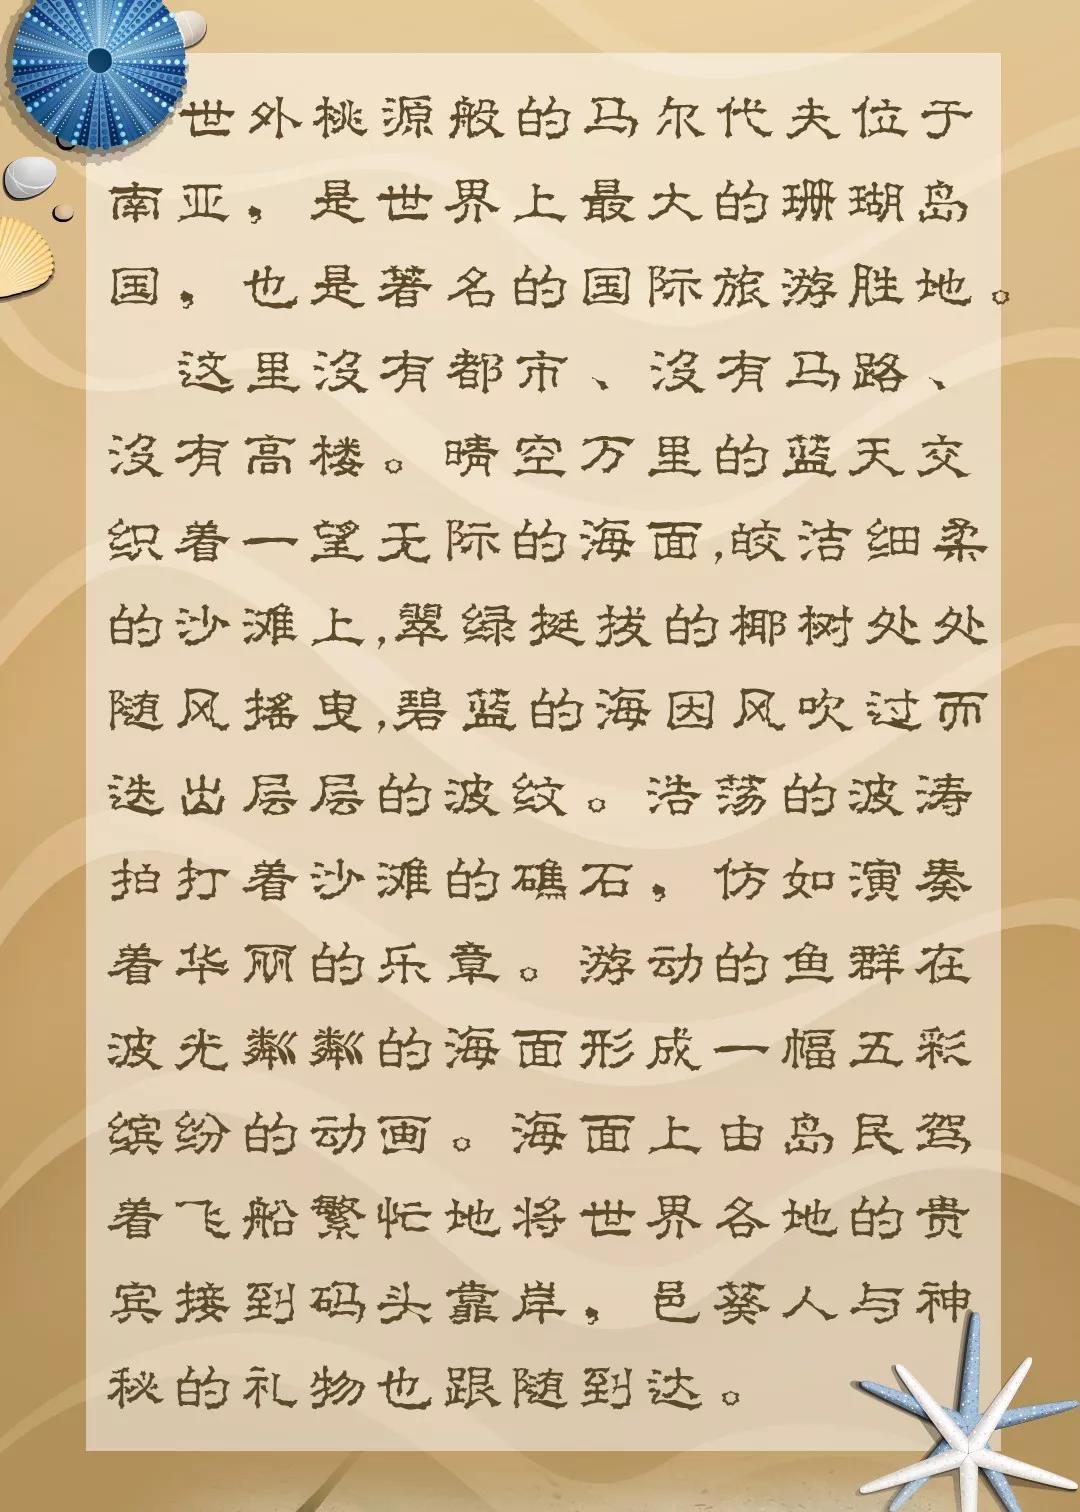 世外桃源般的马尔代夫位于
南亚，是世界上最大的珊瑚岛
国，也是著名的国际旅游胜地。
这里没有都市、没有马路、
没有高楼。晴空万里的蓝天交
织着一望无际的海面,皎洁细柔
的沙滩上,翠绿挺拔的椰树处处
随风摇曳,碧蓝的海因风吹过而
迭出层层的波纹。浩荡的波涛
拍打着沙滩的礁石，仿如演奏
着华丽的乐章。游动的鱼群在
波光粼粼的海面形成一幅五彩
缤纷的动画。海面上由岛民驾
着飞船繁忙地将世界各地的贵
宾接到码头靠岸，邑葵人与神
秘的礼物也跟随到达。